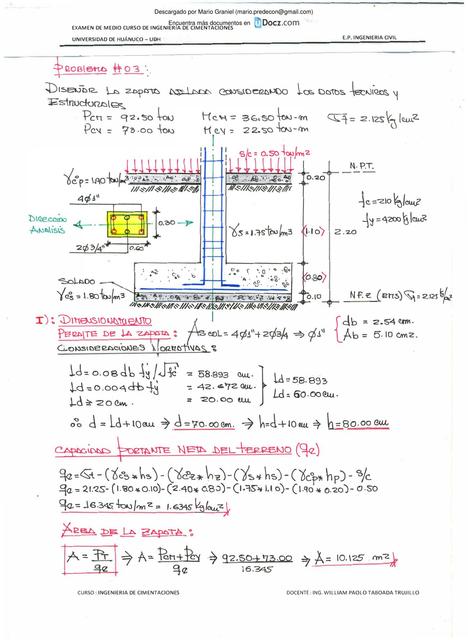 Descargado por Mario Graniel (mario.predecon@gmail.com)
Encuentra más documentos en Docz.com
EXAMEN DE MEDIO CURSO DE INGENIERIA DE CIMENTACIONES
UNIVERSIDAD DE HUÁNUCO – UDH E.P. INGENIERIA CIVIL
PROBLEMA #03:
DISEÑAR LA ZAPATA AISLADA CONSIDERANDO LOS DATOS TECNICOS Y
ESTRUCTURALES
PCM = 92.50 TON MCM = 36.50 TON-M σt = 2.125 Kg/cm²
PCV = 73.00 TON MCV = 22.50 TON-M
S/C = 0.50 TON/M²
N.P.T.
γc°p = 1.90 TON/M³ 0.20
4φ1" f'c = 210 Kg/cm²
DIRECCIÓN ANÁLISIS 0.30 fy = 4200 Kg/cm²
γs = 1.75 TON/M³ (1.10) 2.20
2φ3/4" 0.60
SOLADO (0.80)
γc°s = 1.80 TON/M³ 0.10 σt = 2.125 Kg/cm²
I): DIMENSIONAMIENTO
PERALTE DE LA ZAPATA: AS COL = 4φ1" + 2φ3/4 ⇒ φ1" { db = 2.54 cm.
Ab = 5.10 cm2.
CONSIDERACIONES NORMATIVAS:
Ld = 0.08 db fy/√f'c = 58.893 cm.
Ld = 0.004 db fy = 42.672 cm Ld = 58.893
Ld ≥ 20 cm = 20.00 cm Ld = 60.00 cm.
∴ d = Ld + 10 cm ⇒ d = 70.00 cm. ⇒ h = d + 10 cm ⇒ h = 80.00 cm
CAPACIDAD PORTANTE NETA DEL TERRENO (qe)
qe = σt - (γc°s * hs) - (γc°z * hz) - (γs * hs) - (γc°p * hp) - S/C
qe = 21.25 - (1.80 * 0.10) - (2.40 * 0.80) - (1.75 * 1.10) - (1.90 * 0.20) - 0.50
qe = 16.345 TON/M² = 1.6345 Kg/cm²
ÁREA DE LA ZAPATA:
A = PT/qe ⇒ A = PCM + PCV/qe ⇒ 92.50 + 73.00/16.345 ⇒ A = 10.125 m²
CURSO : INGENIERIA DE CIMENTACIONES DOCENTE : ING. WILLIAM PAOLO TABOADA TRUJILLO